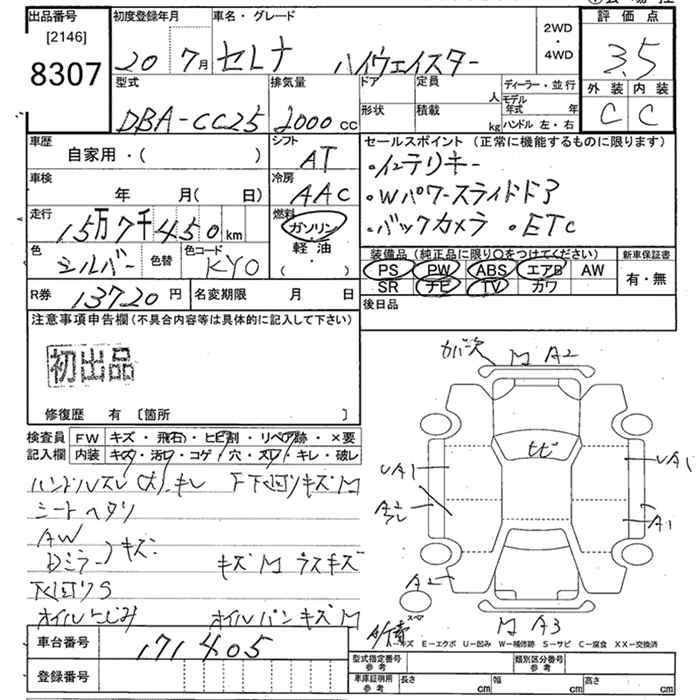 出品番号
[2146]
8307
初度登録年月
20 7月
車名・グレード
セレナ ハイウェイスター
2WD
・
4WD
評価点
3.5
外装 内装
C C
型式
DBA-CC25
排気量
2000 cc
ドア
形状
定員
人
積載
kg
ディーラー・並行
モデル年式 年
ハンドル 左・右
車歴
自家用・( )
シフト
AT
車検
年 月(日 )
冷房
AAC
走行
15万7千450km
燃料
ガソリン
・
軽・油
( )
色
シルバー
色替
色コード
KY0
R券
13720円
名変期限 月 日
セールスポイント (正常に機能するものに限ります)
・インテリキー
・Wパワースライドドア
・バックカメラ ・ETC
装備品 (純正品に限り○をつけてください)
PS PW ABS エアB AW
SR ナビ TV カワ
新車保証書
有・無
後日品
注意事項申告欄 (不具合内容等は具体的に記入して下さい)
初出品
修復歴 有 〔箇所 〕
検査員
記入欄
FW キズ・飛石・ヒビ割・リペア跡・×要
内装 キズ・汚レ・コゲ・穴・スレ・キレ・破レ
ハンドルスレ(大)キレ F下回りキズM
シートヘタリ
AW
Dミラー キズ
キズM ラスキズ
下回りS
オイルにじみ オイルパンキズM
カバ欠 M A2
ヒビ
UA1
UA1
A2
A1
A2
M A3
A-キズ E-エクボ U-凹み W-補修跡 S-サビ C-腐食 XX-交換済
車台番号
171405
登録番号
型式指定番号
参考
類別区分番号
参考
車庫証明用
参考
長さ cm
幅 cm
高さ cm